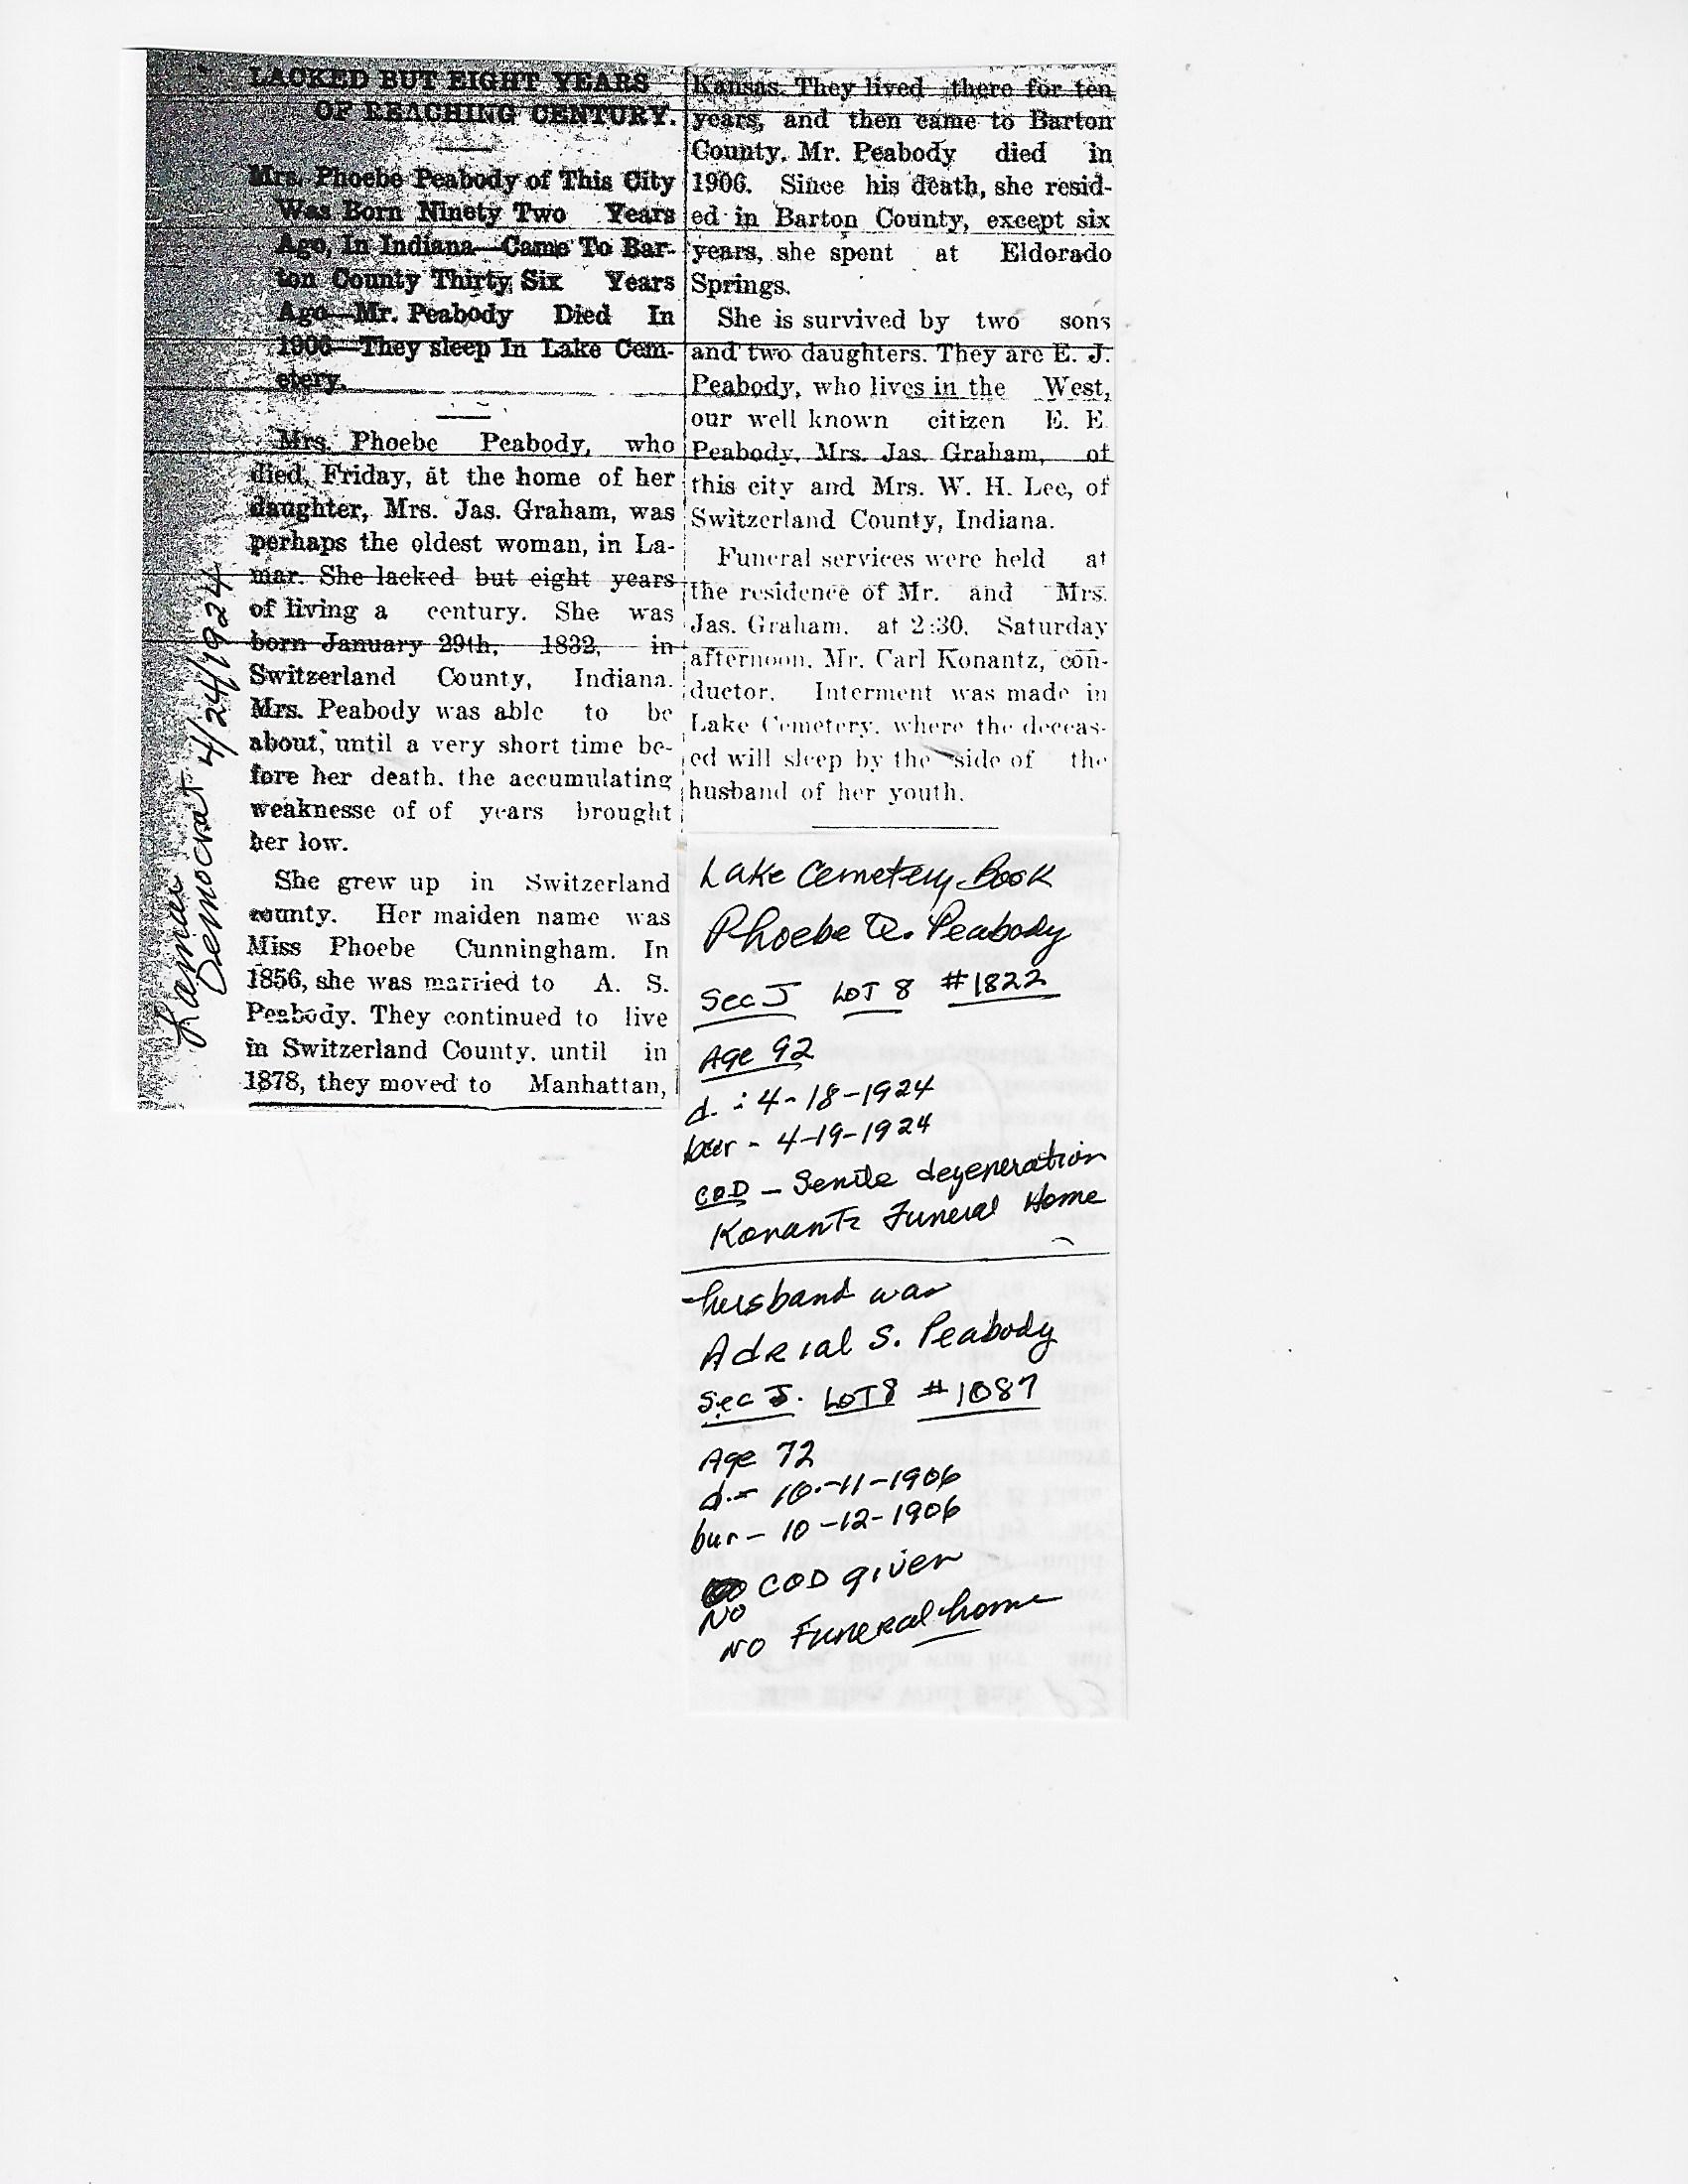 LACKED BUT EIGHT YEARS
OF REACHING CENTURY.
Mrs. Phoebe Peabody of This City
Was Born Ninety Two Years
Ago, In Indiana—Came To Bar-
ton County Thirty Six Years
Ago—Mr. Peabody Died In
1906—They sleep In Lake Cem-
etery.
Mrs. Phoebe Peabody, who
died, Friday, at the home of her
daughter, Mrs. Jas. Graham, was
perhaps the oldest woman, in La-
mar. She lacked but eight years
of living a century. She was
born January 29th, 1832, in
Switzerland County, Indiana.
Mrs. Peabody was able to be
about, until a very short time be-
fore her death. the accumulating
weaknesse of of years brought
her low.
She grew up in Switzerland
county. Her maiden name was
Miss Phoebe Cunningham. In
1856, she was married to A. S.
Peabody. They continued to live
in Switzerland County. until in
1878, they moved to Manhattan,
Lamar
Democrat 4/24/1924
Kansas. They lived there for ten
years, and then came to Barton
County. Mr. Peabody died in
1906. Since his death, she resid-
ed in Barton County, except six
years, she spent at Eldorado
Springs.
She is survived by two sons
and two daughters. They are E. J.
Peabody, who lives in the West,
our well known citizen E. E.
Peabody, Mrs. Jas. Graham, of
this city and Mrs. W. H. Lee, of
Switzerland County, Indiana.
Funeral services were held at
the residence of Mr. and Mrs.
Jas. Graham. at 2:30. Saturday
afternoon. Mr. Carl Konantz, con-
ductor. Interment was made in
Lake Cemetery. where the deceas-
ed will sleep by the side of the
husband of her youth.
Lake Cemetery Book
Phoebe Q. Peabody
Sec J LOT 8 #1822
Age 92
d. : 4-18-1924
bur - 4-19-1924
COD - Senile degeneration
Konantz Funeral Home
husband was
Adrial S. Peabody
Sec J. LOT 8 #1087
Age 72
d.- 10-11-1906
bur - 10-12-1906
NO COD given
NO Funeral home